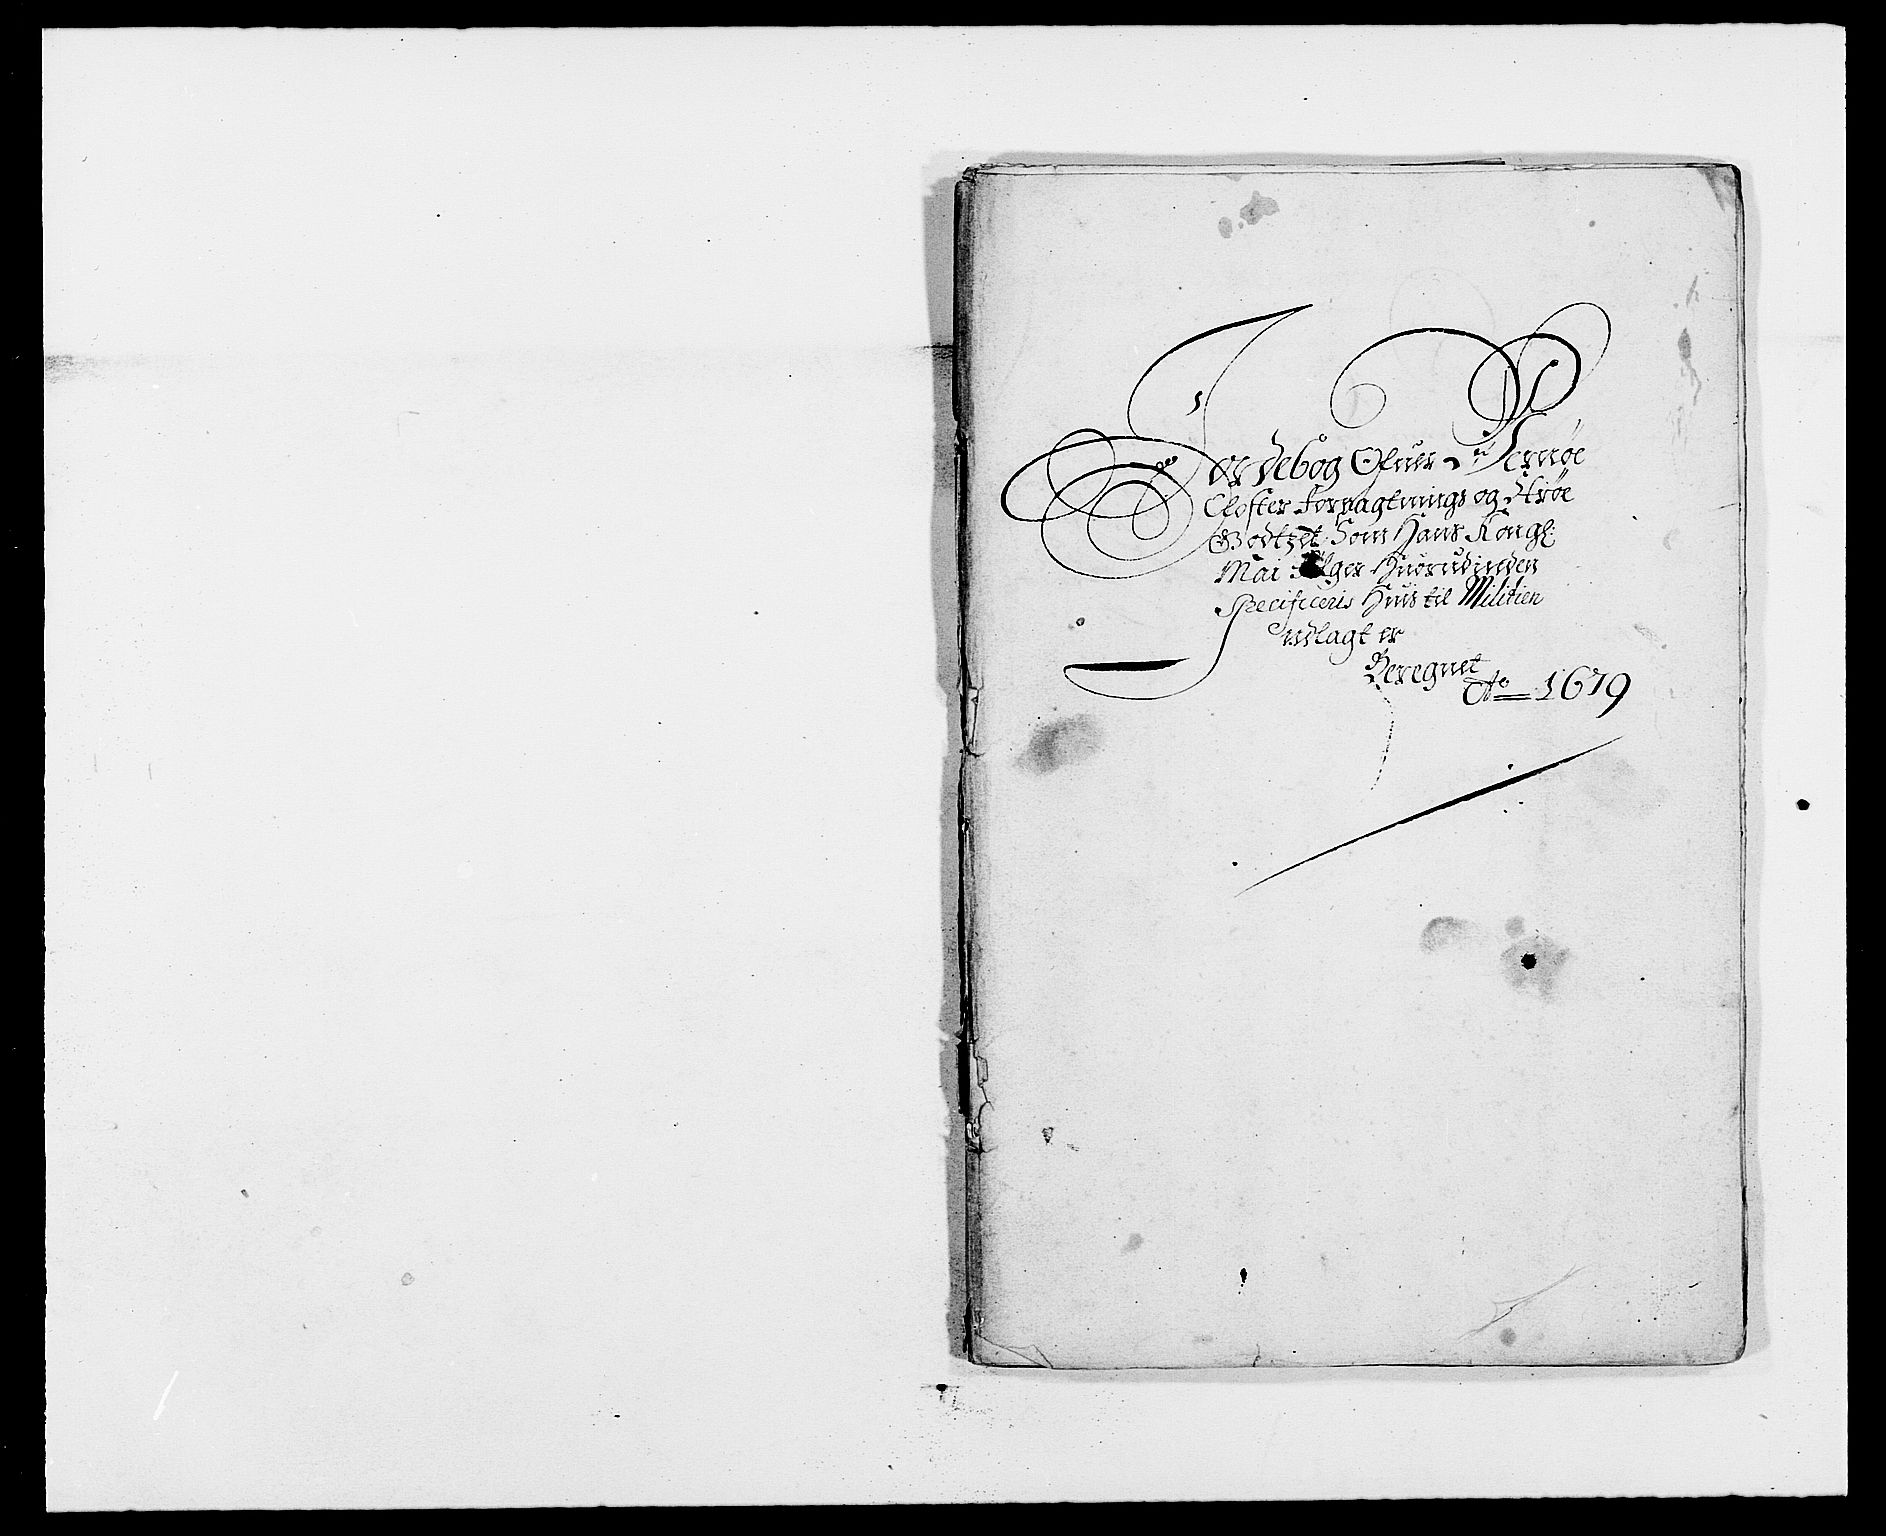 Jordebog Ofuer Wernøe
Closter Forpagtnings og Strøe
Godtzet Som Hans Kongl:
Mai følger Huorudinden
Specificeris Huis til Militien
Udlagt er
Beregnet
Ao 1679